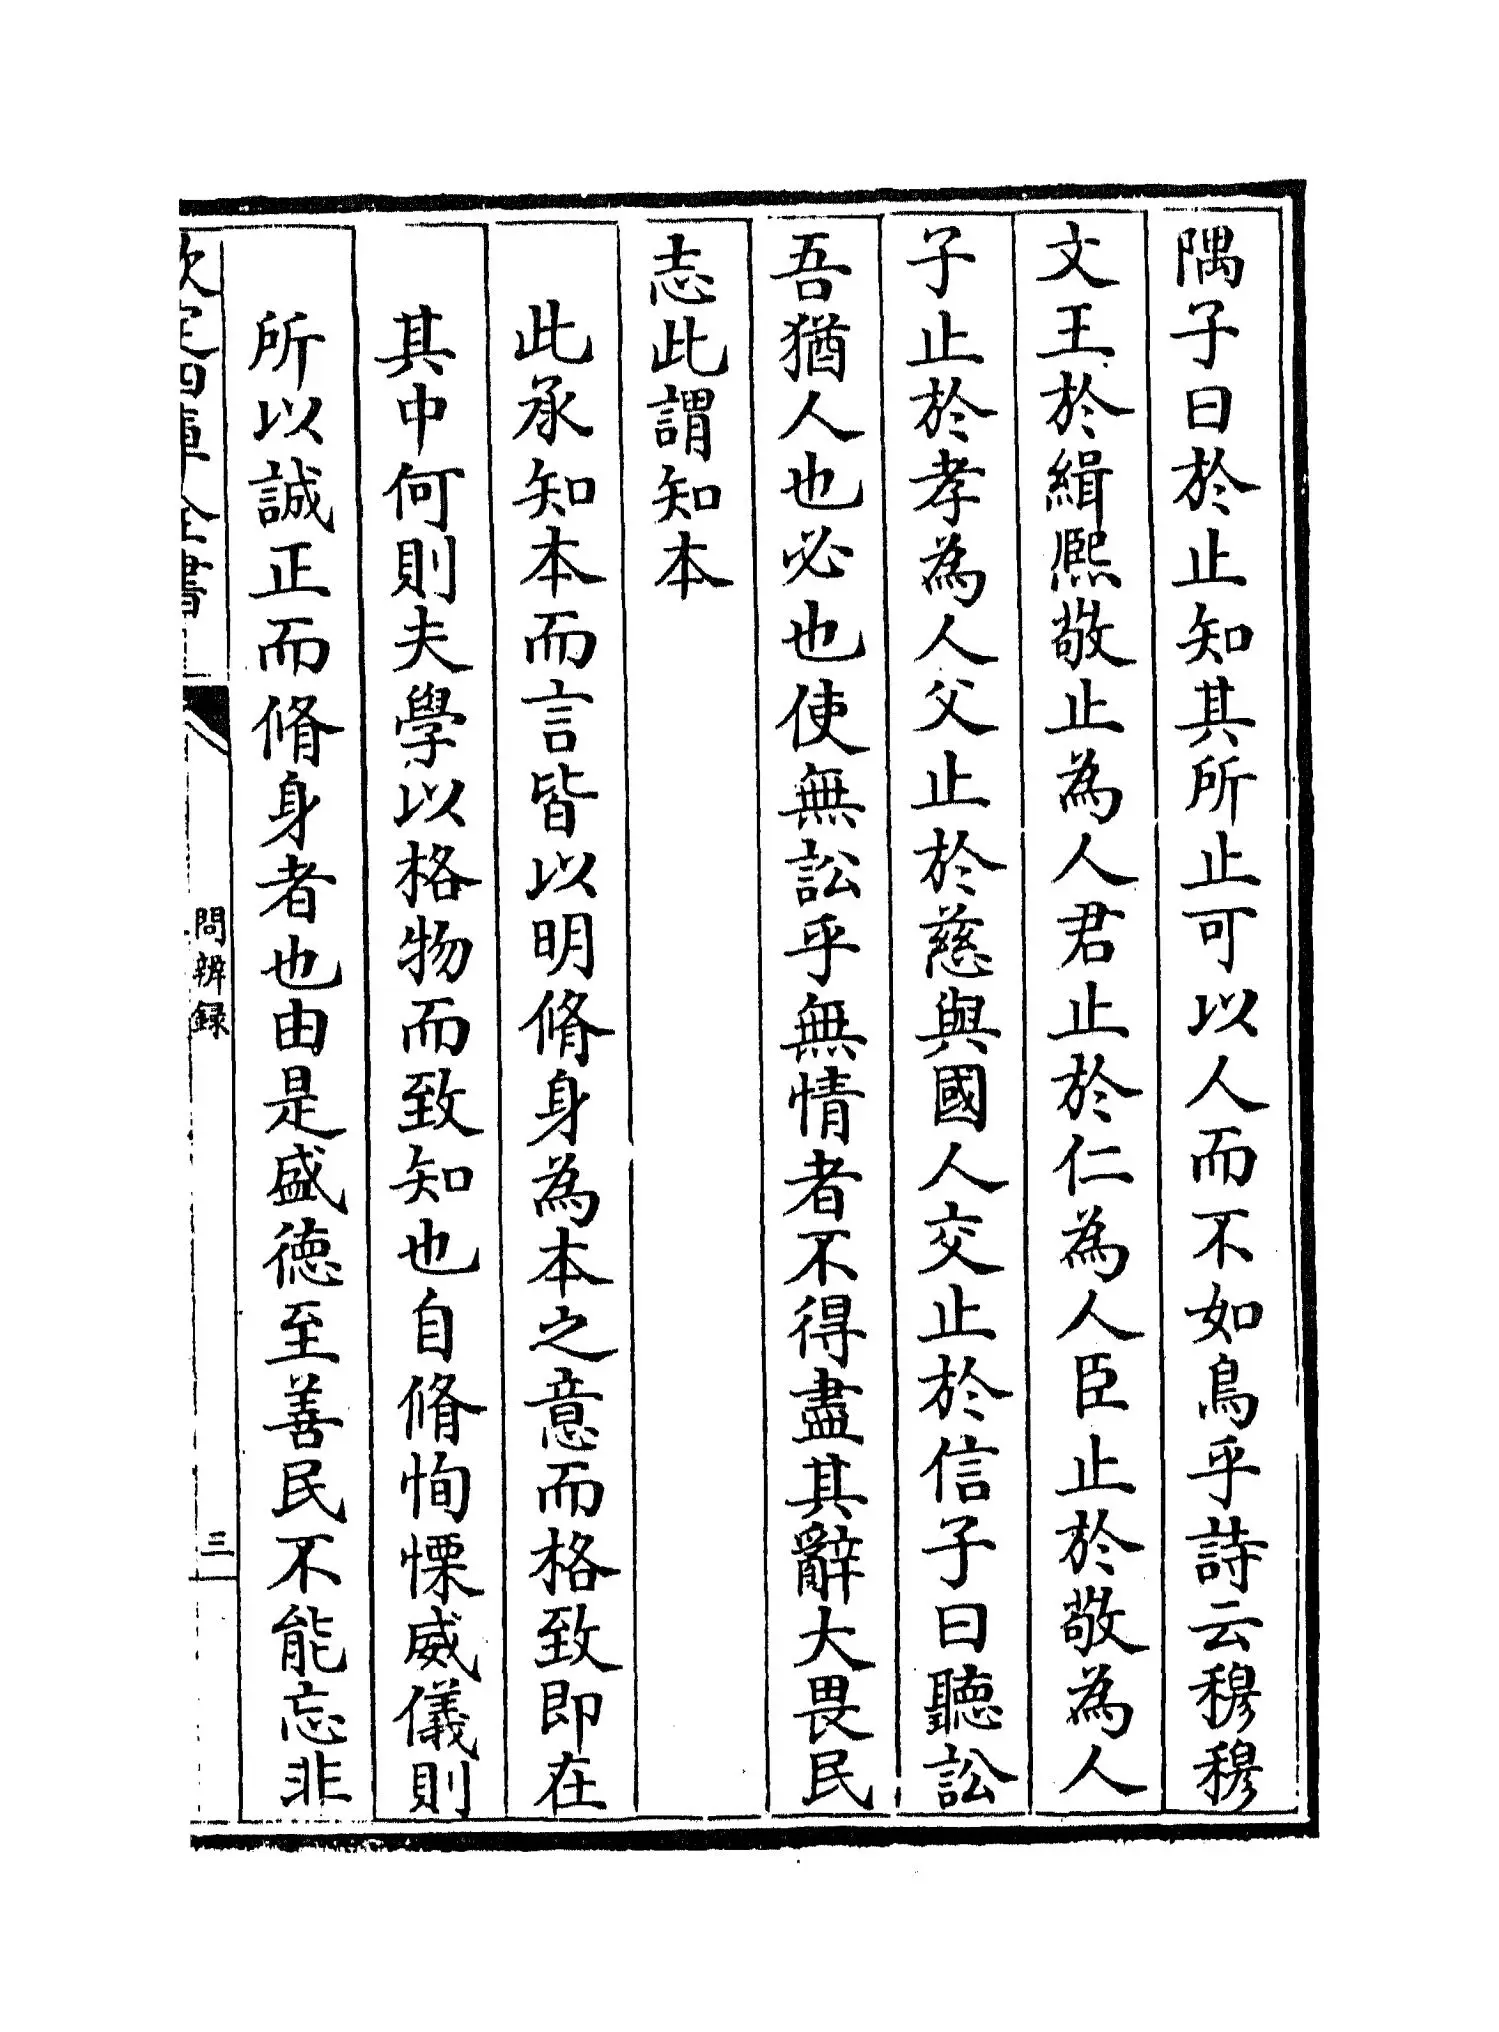 隅子曰於止知其所止可以人而不如鳥乎詩云穆穆
文王於緝熙敬止為人君止於仁為人臣止於敬為人
子止於孝為人父止於慈與國人交止於信子曰聽訟
吾猶人也必也使無訟乎無情者不得盡其辭大畏民
志此謂知本
此承知本而言皆以明脩身為本之意而格致即在
其中何則夫學以格物而致知也自脩恂慄威儀則
所以誠正而脩身者也由是盛德至善民不能忘非
欽定四庫全書
問辨録
三